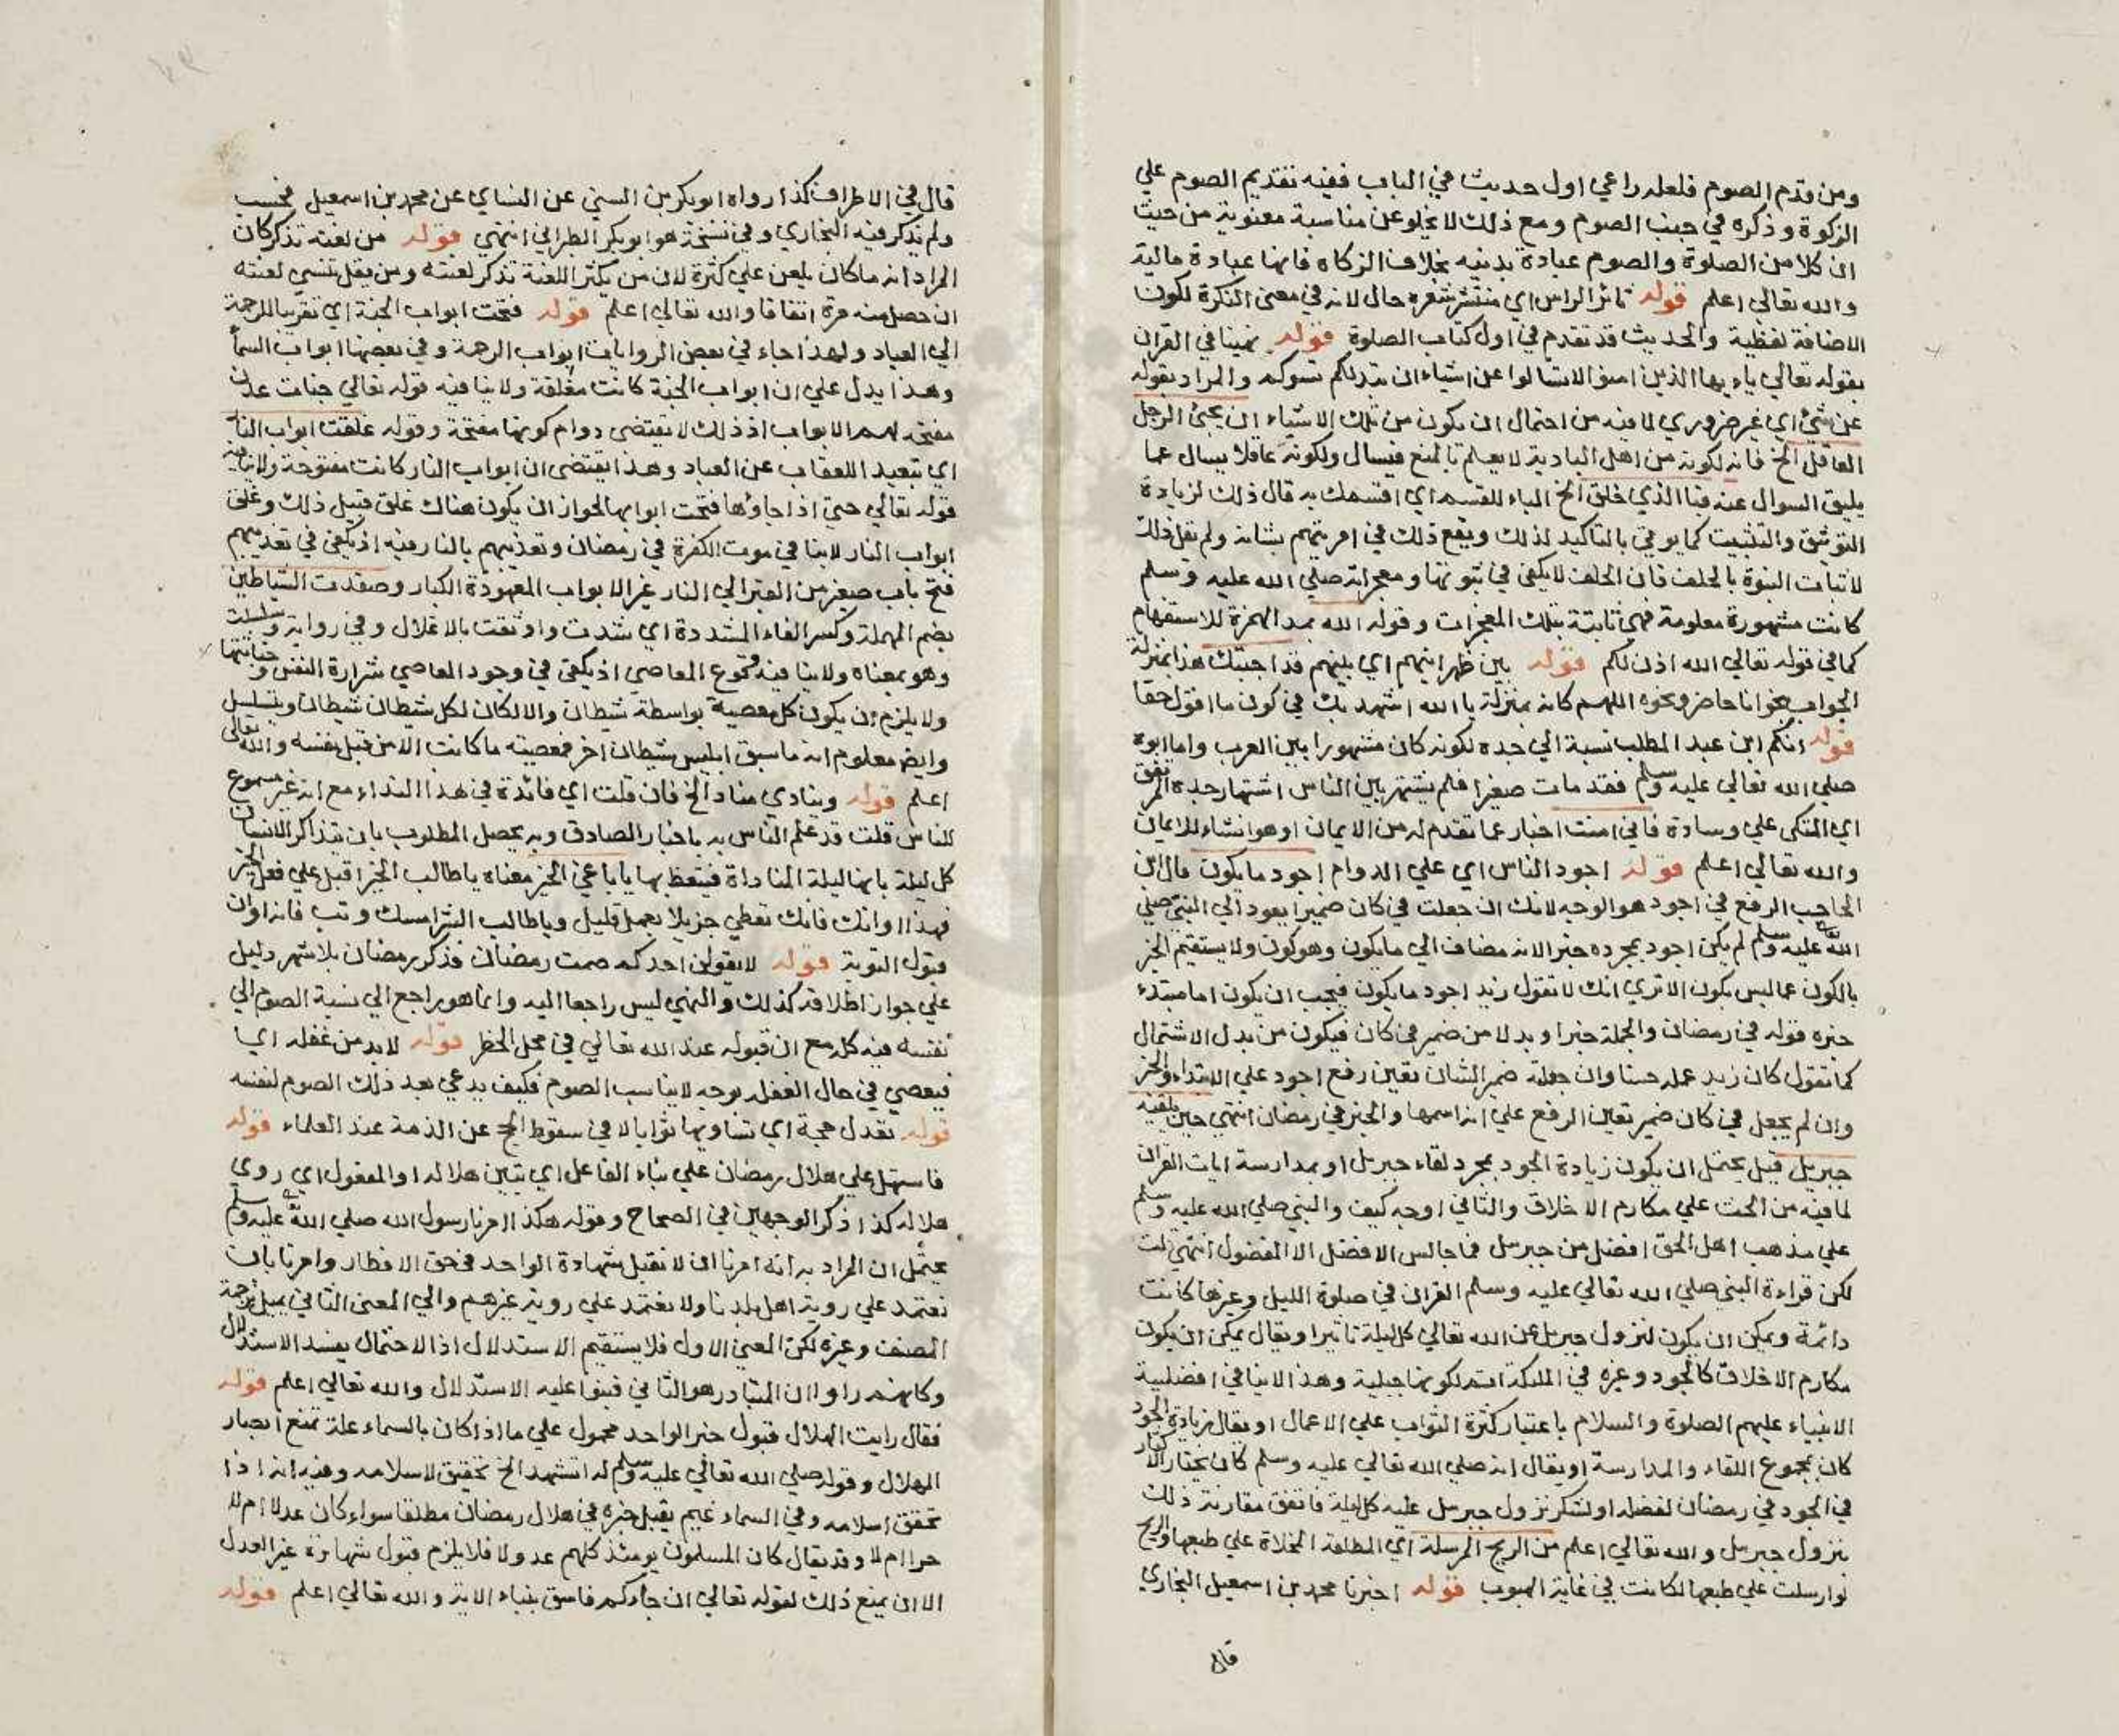 ومن قدم الصوم فلعله راعي اول حديث في الباب ففيه تقديم الصوم علي
الزكوة وذكره في جنب الصوم ومع ذلك لا يخلو عن مناسبة معنوية من حيث
ان كلا من الصلوة والصوم عبادة بدنيه بخلاف الزكاه فانها عبادة مالية
والله تعالي اعلم قوله ثائر الراس اي منتشر شعره حال لانه في معني النكرة لكون
الاضافة لفظية والحديث قد تقدم في اول كتاب الصلوة قوله نهينا في القران
بقوله تعالي ياءيها الذين امنوا لا تسالوا عن اشياء ان تبدلكم تسوكم والمراد بقوله
عن شئ اي غير ضروري لما فيه من احتمال ان يكون من تلك الاشياء ان يجئ الرجل
العاقل الخ فانه لكونه من اهل البادية لا يعلم بالمنع فيسال ولكونه عاقلا يسال عما
يليق السوال عنه فبالذي خلق الخ الباء للقسم اي اقسمك به قال ذلك لزيادة
التوثيق والتثبيت كما يوتي بالتاكيد لذلك ويقع ذلك في امر يهتم بشانه ولم يقل ذلك
لاثبات النبوة بالحلف فان الحلف لا يكفي في ثبوتها ومعجزاته صلي الله عليه وسلم
كانت مشهورة معلومة فهي ثابتة بتلك المعجزات وقوله الله بمد الهمزة للاستفهام
كما في قوله تعالي الله اذن لكم قوله بين ظهرانيهم اي بينهم قد اجبتك هذا بمنزلة
الجواب بنحو انا حاضر ونحوه اللهم كانه بمنزلة يا الله اشهد بك في كون ما اقول حقا
قوله ايكم ابن عبد المطلب نسبة الي جده لكونه كان مشهورا بين العرب واما ابوه
صلي الله تعالي عليه وسلم فقد مات صغيرا فلم يشتهر بين الناس اشتهار جده المرتفق
اي المتكي علي وسادة فاني امنت اخبار عما تقدم له من الايمان او هو انشاء للايمان
والله تعالي اعلم قوله اجود الناس اي علي الدوام اجود ما يكون قال ابن
الحاجب الرفع في اجود هو الوجه لانك ان جعلت في كان ضميرا يعود الي النبي صلي
الله عليه وسلم لم يكن اجود بمجرده خبرا لانه مضاف الي ما يكون وهو كون ولا يستقيم الخبر
بالكون عما ليس بكون الا تري انك لا تقول زيد اجود ما يكون فيجب ان يكون اما مبتدء
خبره قوله في رمضان والجملة خبر او بدلا من ضمير في كان فيكون من بدل الاشتمال
كما تقول كان زيد عمله حسنا وان جعلته ضمير الشان تعين رفع اجود علي الابتداء والخبر
وان لم يجعل في كان ضمير تعين الرفع علي انه اسمها والخبر في رمضان انتهي حين يلقيه
جبريل قيل يحتمل ان يكون زيادة الجود بمجرد لقاء جبريل او بمدارسة ايات القران
لما فيه من الحث علي مكارم الاخلاق والثاني اوجه كيف والنبي صلي الله عليه وسلم
علي مذهب اهل الحق افضل من جبريل فما جالس الافضل الا المفضول انتهي قلت
لكن قراءة النبي صلي الله تعالي عليه وسلم القران في صلوة الليل وغيرها كانت
دائمة ويمكن ان يكون لنزول جبريل عن الله تعالي كل ليلة تاثيرا ويقال يمكن ان يكون
مكارم الاخلاق كالجود وغيره في الملئكة اتم لكونها جبلية وهذا لا ينافي افضلية
الانبياء عليهم الصلوة والسلام باعتبار كثرة الثواب علي الاعمال او يقال زيادة الجود
كان بمجموع اللقاء والمدارسة او يقال انه صلي الله تعالي عليه وسلم كان يختار الاكثار
في الجود في رمضان لفضله او لشكر نزول جبريل عليه كل ليلة فاتفق مقارنة ذلك
بنزول جبريل والله تعالي اعلم من الريح المرسلة اي المطلقة المخلاة علي طبعها والريح
لو ارسلت علي طبعها لكانت في غاية الهبوب قوله اخبرنا محمد بن اسمعيل البخاري
قال
قال في الاطراف كذا رواه ابو بكر بن السني عن النساي عن محمد بن اسمعيل فحسب
ولم يذكر فيه البخاري وفي نسخة هو ابو بكر الطبراني انتهي قوله من لعنة تذكر كان
المراد انه ما كان يلعن علي كثرة لان من يكثر اللعنة تذكر لعنته ومن يقل تنسي لعنته
ان حصل منه مرة اتفاقا والله تعالي اعلم قوله فتحت ابواب الجنة اي تقريبا للرحمة
الي العباد ولهذا جاء في بعض الروايات ابواب الرحمة وفي بعضها ابواب السما
وهذا يدل علي ان ابواب الجنة كانت مغلقة ولا ينافيه قوله تعالي جنات عدن
مفتحة لهم الابواب اذ ذلك لا يقتضي دوام كونها مفتحة وقوله غلقت ابواب النار
اي تبعيد اللعقاب عن العباد وهذا يقتضي ان ابواب النار كانت مفتوحة ولا ينافيه
قوله تعالي حتي اذا جاؤها فتحت ابوابها لجواز ان يكون هناك غلق قبيل ذلك وغلق
ابواب النار لا ينافي موت الكفرة في رمضان وتعذيبهم بالنار فيه اذ يكفي في تعذيبهم
فتح باب صغير من القبر الي النار غير الابواب المعهودة الكبار وصفدت الشياطين
بضم المهملة وكسر الفاء المشددة اي شدت واوثقت بالاغلال وفي رواية وسلسلت
وهو بمعناه ولا ينافيه وقوع المعاصي اذ يكفي في وجود المعاصي شرارة النفس وخباثتها
ولا يلزم ان يكون كل معصية بواسطة شيطان والا لكان لكل شيطان شيطان ويتسلسل
وايض معلوم انه ما سبق ابليس شيطان اخر فمعصيته ما كانت الا من قبل نفسه والله تعالى
اعلم قوله وينادي مناد الخ فان قلت اي فائدة في هذا النداء مع انه غير مسموع
للناس قلت قد علم الناس به باخبار الصادق وبه يحصل المطلوب بان يتذاكر الانسان
كل ليلة بانها ليلة المناداة فيتعظ بها يا باغي الخير معناه يا طالب الخير اقبل علي فعل الخير
فهذا اوانك فانك تعطي جزيلا بعمل قليل ويا طالب الشر امسك وتب فانه اوان
قبول التوبة قوله لا يقولن احدكم صمت رمضان فذكر رمضان بلا شهر دليل
علي جواز اطلاقه كذلك والنهي ليس راجعا اليه وانما هو راجع الي نسبة الصوم الي
نفسه فيه كله مع ان قبوله عند الله تعالي في محل الخطر قوله لا بد من غفله اي
فيعصي في حال الغفله بوجه لا يناسب الصوم فكيف يدعي بعد ذلك الصوم لنفسه
قوله تعدل حجة اي تساويها ثوابا لا في سقوط الحج عن الذمة عند العلماء قوله
فاستهل علي هلال رمضان علي بناء الفاعل اي تبين هلاله او المفعول اي روي
هلاله كذا ذكر الوجهين في الصحاح وقوله هكذا امرنا رسول الله صلي الله عليه وسلم
يحتمل ان المراد به انه امرنا ان لا نقبل شهادة الواحد في حق الافطار وامرنا بان
نعتمد علي روية اهل بلدنا ولا نعتمد علي روية غيرهم والي المعني الثاني يميل ترجمة
المصنف وغيره لكن المعني الاول فلا يستقيم الاستدلال اذ الاحتمال يفسد الاستدلال
وكانهم راوا ان المتبادر هو الثاني فبنوا عليه الاستدلال والله تعالي اعلم قوله
فقال رايت الهلال قبول خبر الواحد محمول علي ما اذا كان بالسماء علة تمنع ابصار
الهلال وقوله صلي الله تعالي عليه وسلم له اتشهد الخ تحقيق لاسلامه وفيه انه اذا
تحقق اسلامه وفي السماء غيم يقبل خبره في هلال رمضان مطلقا سواء كان عدلا ام لا
حرا ام لا وقد يقال كان المسلمون يومئذ كلهم عدولا فلا يلزم قبول شهادة غير العدل
الا ان يمنع ذلك لقوله تعالي ان جاءكم فاسق بنباء الاية والله تعالي اعلم قوله